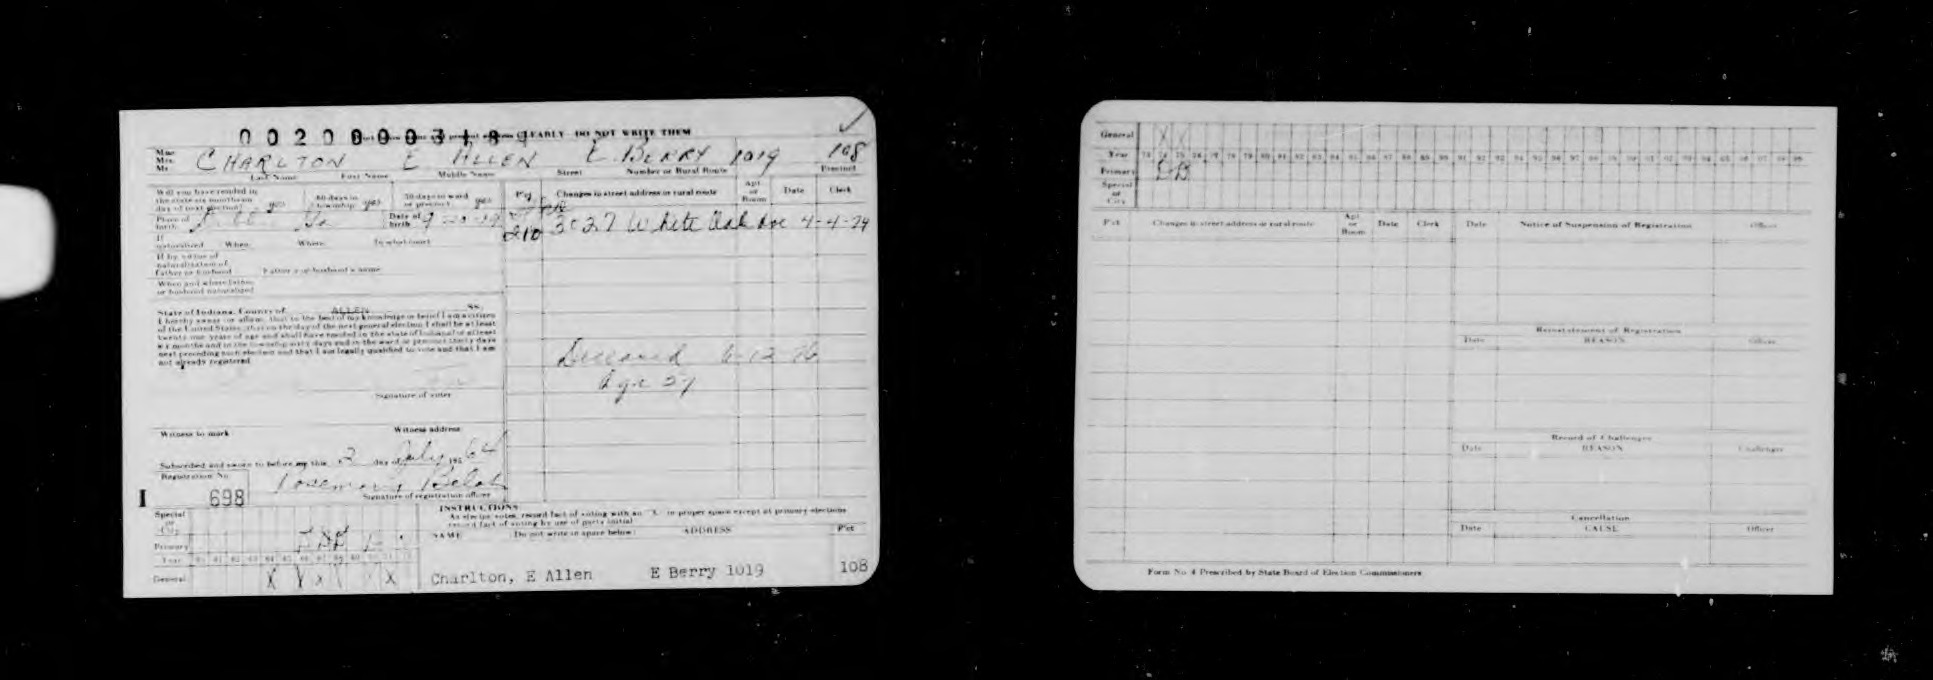 CLEARLY DO NOT WRITE THEM
Miss
Mrs.
Mr. CHARLTON E ALLEN E. BERRY 1019 108
Last Name First Name Middle Name Street Number or Rural Route Precinct
Will you have resided in
the state six months on
day of next election? yes
60 days in
township yes
30 days in ward
or precinct yes
Place of
birth
Date of
birth
If
naturalized When Where In what court
If by virtue of
naturalization of
father or husband Father's or husband's name
When and where father
or husband naturalized
State of Indiana, County of ALLEN SS.
I hereby swear (or affirm) that to the best of my knowledge or belief I am a citizen
of the United States, that on the day of the next general election I shall be at least
twenty one years of age and shall have resided in the state of Indiana for at least
six months and in the township sixty days and in the ward or precinct thirty days
next preceding such election and that I am legally qualified to vote and that I am
not already registered
Signature of voter
Witness to mark Witness address
Subscribed and sworn to before my this 2 day of July 1964
Registration No
I 698
Rosemary
Signature of registration officer
P'ct Changes in street address or rural route Apt or Room Date Clerk
210 3027 White Oak Ave 4-4-74
Deceased 6-12-76
Age 57
Special
or
City
Primary
Year
General X X X X X
INSTRUCTIONS
As elector votes, record fact of voting with an "X" in proper space except at primary elections
record fact of voting by use of party initial
NAME (Do not write in space below) ADDRESS P'ct
Charlton, E Allen E Berry 1019 108
General X X
Year 73 74 75 76 77 78 79 80 81 82 83 84 85 86 87 88 89 90 91 92
Primary
Special
or
City
P'ct Changes in street address or rural route Apt or Room Date Clerk
Date Notice of Suspension of Registration Officer
Reinstatement of Registration
Date REASON Officer
Record of Challenges
Date REASON Challenger
Cancellation
Date CAUSE Officer
Form No. 4 Prescribed by State Board of Election Commissioners